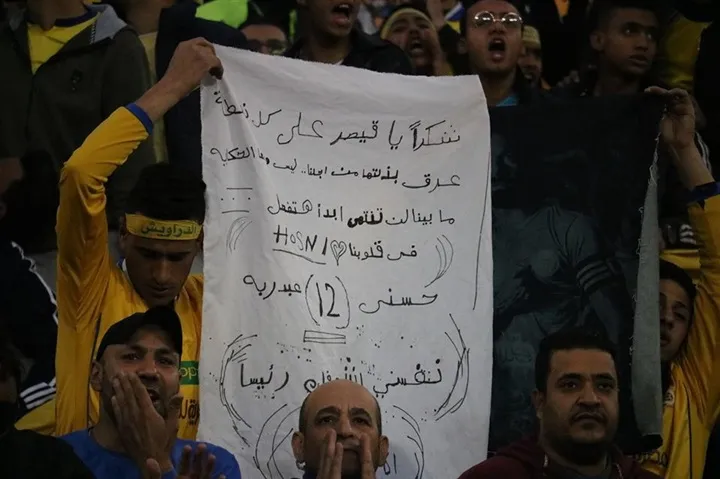 شكراً يا قيصر على كل نقطة
عرق بذلتها من اجلنا.. ليس وهذا
ما بينا لن تنتهى ابداً هتفضل
فى قلوبنا HOSNI
حسنى (12) عبدربه
نفسي رئيساً
الدراويش